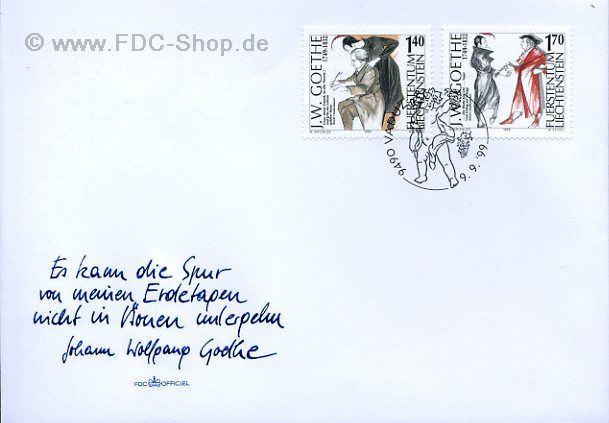 © www.FDC-Shop.de
J.W. GOETHE
1749-1832
1.40
FUERSTENTUM
LIECHTENSTEIN
J.W. GOETHE
1749-1832
1.70
FUERSTENTUM
LIECHTENSTEIN
1999
1999
9490 VADUZ
9.9.99
Es kann die Spur
von meinen Erdetagen
nicht in Äonen untergehn
Johann Wolfgang Goethe
FDC OFFICIEL